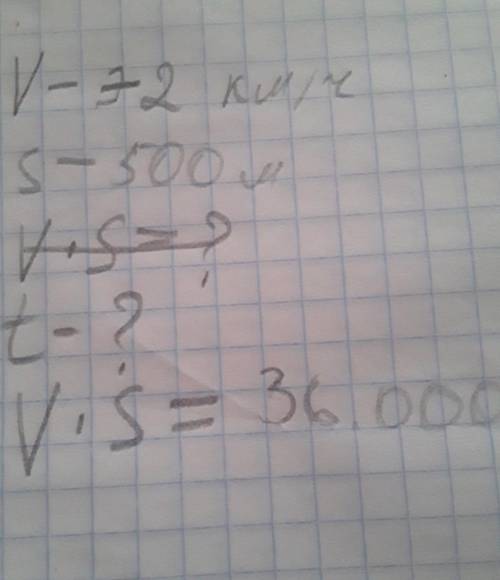 V - 72 км/ч
S - 500 м
V · S = ?
t - ?
V · S = 36.000